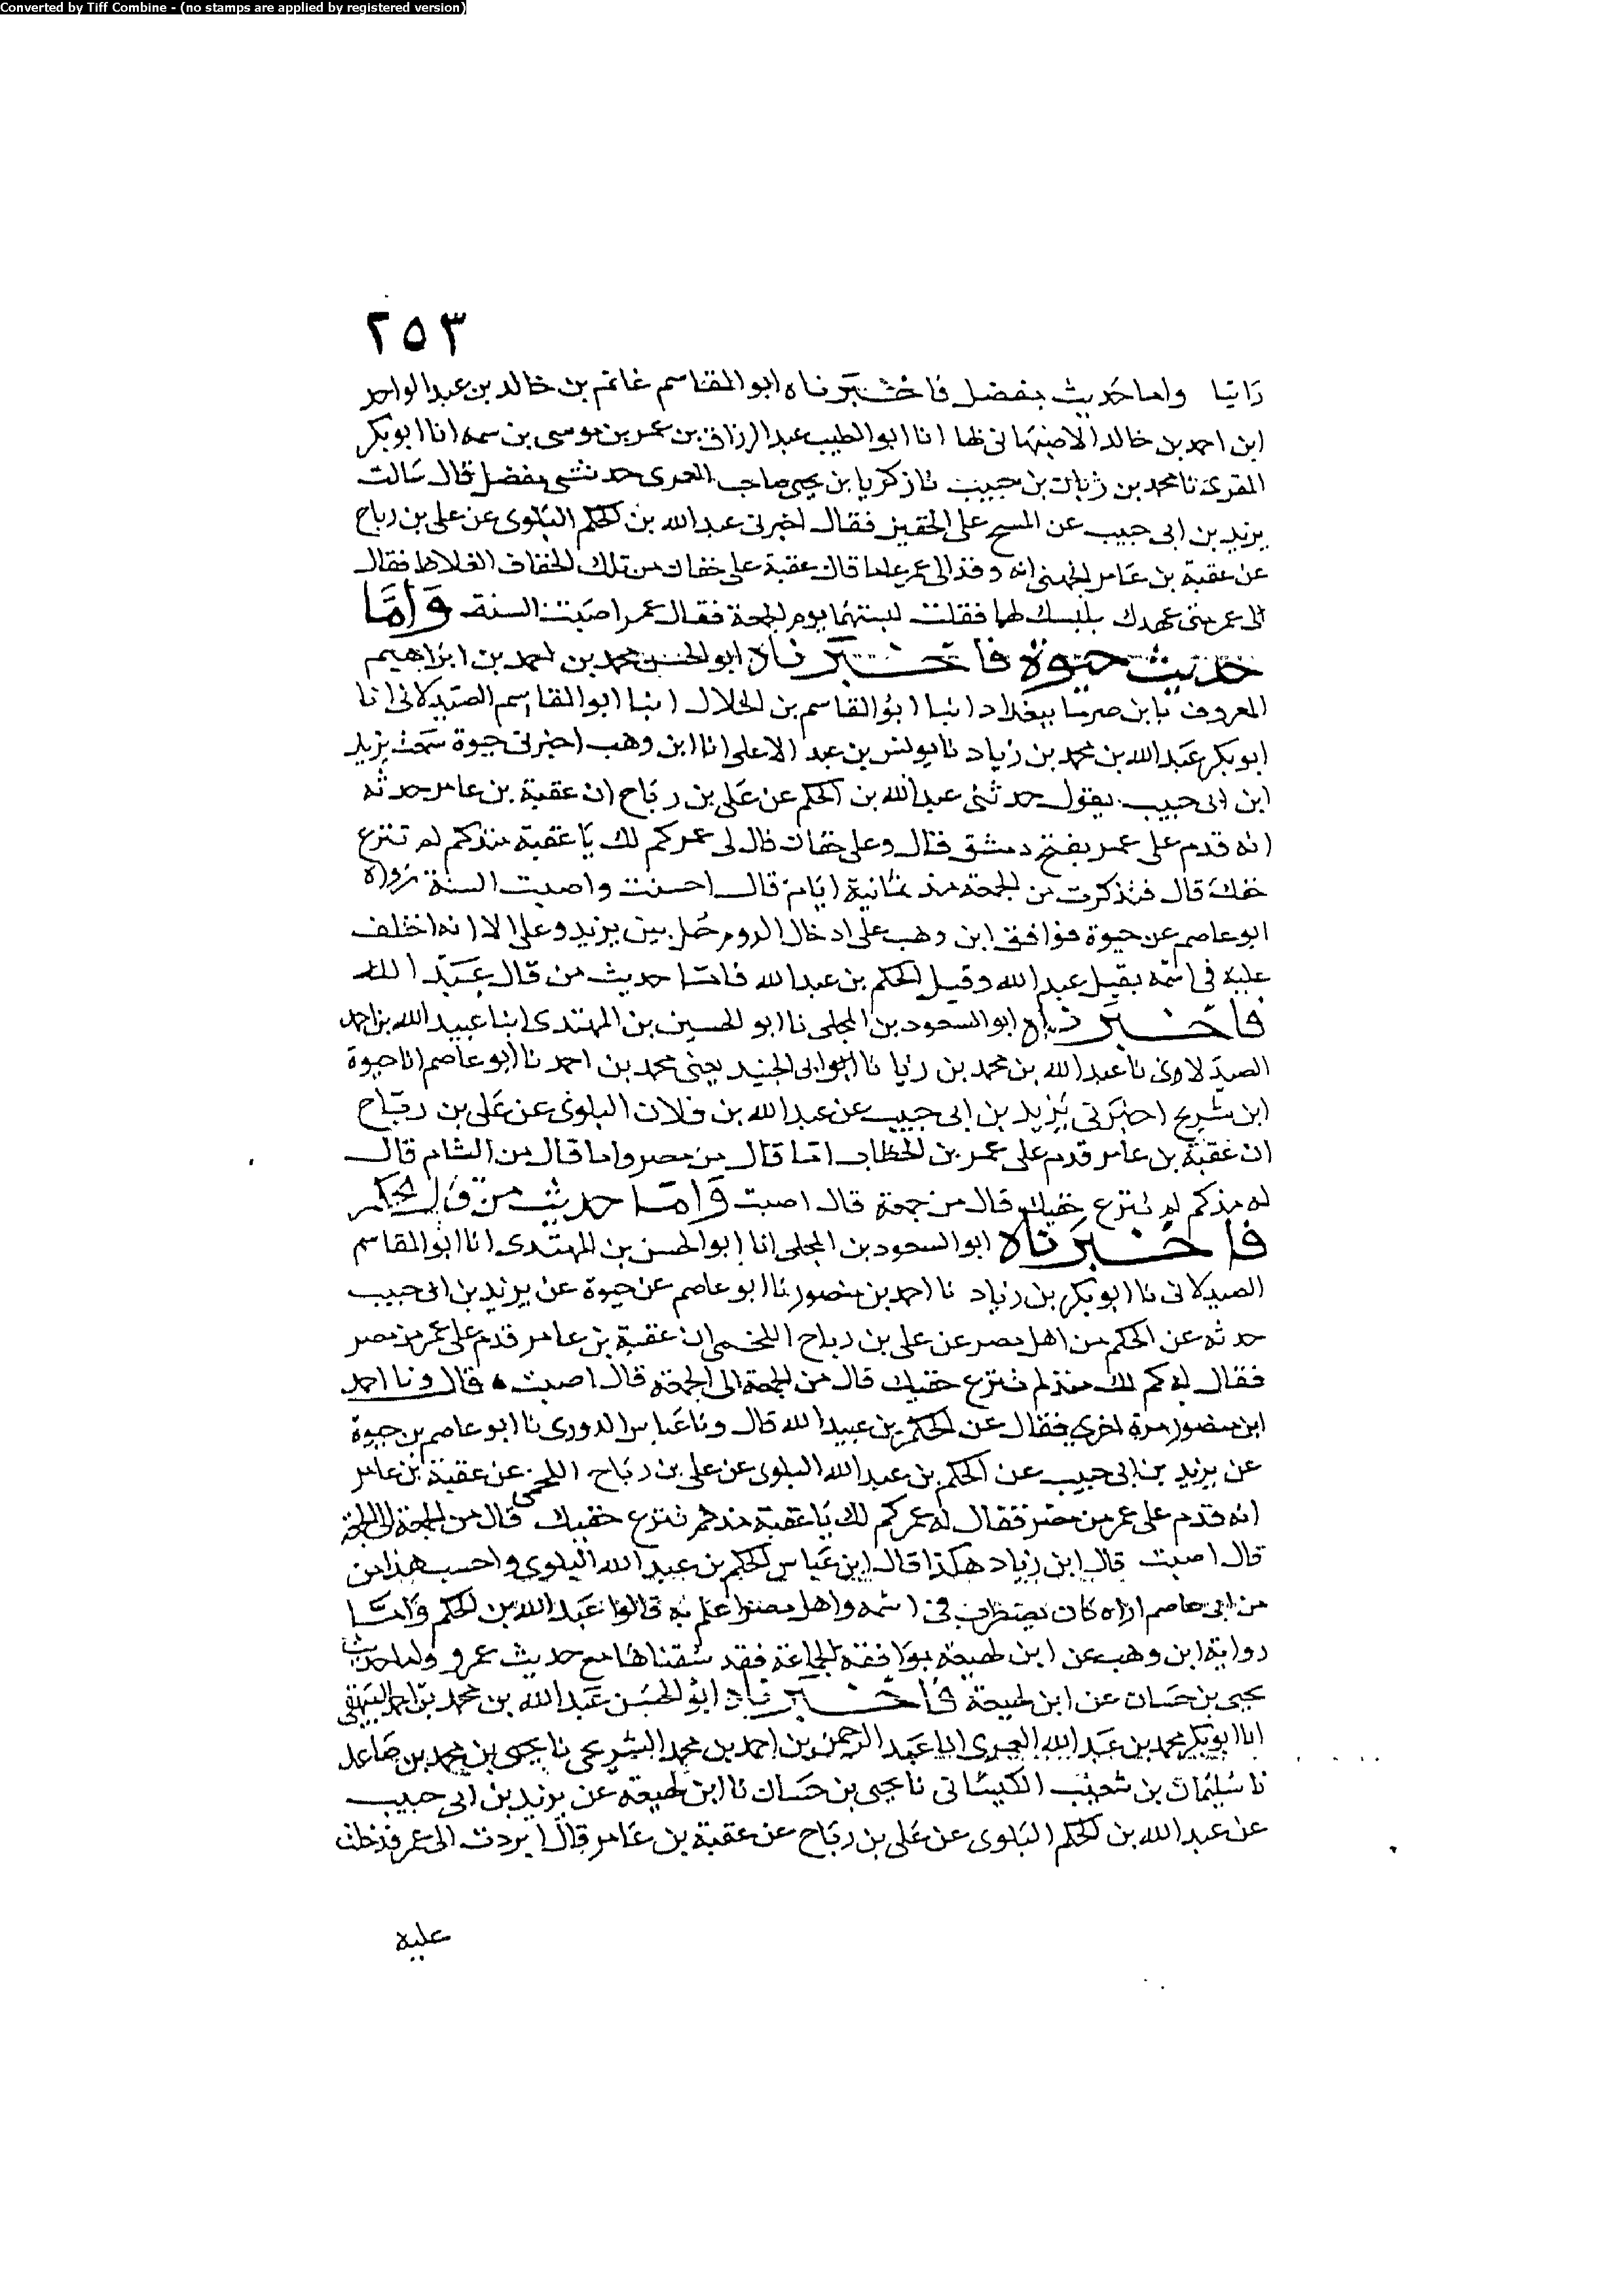 Converted by Tiff Combine - (no stamps are applied by registered version)
٢٥٣
واما حديث مفضل فاخبرناه ابو القاسم غانم بن خالد بن عبد الواحد
ابن احمد بن خالد الاصبهاني بها انا ابو الطيب عبد الرزاق بن عمر بن موسى بن سمه انا ابو بكر
المقرئ نا محمد بن زبان بن حبيب نا زكريا بن يحيى صاحب العمرى حدثنى مفضل قال سالت
يزيد بن ابى حبيب عن المسح على الخفين فقال اخبرنى عبد الله بن الحكم البلوى عن على بن رباح
عن عقبة بن عامر الجهنى انه وفد الى عمر عاما قال عقبة على خفان من تلك الخفاف الغلاظ فقال
لى عمر متى عهدك بلبسك لهما فقلت لبستهما يوم الجمعة فقال عمر اصبت السنة وَامَّا
حديث حيوة فاخبرناه ابو الحسن محمد بن احمد بن ابراهيم
المعروف بابن صرما ببغداد انبا ابو القاسم بن الخلال انبا ابو القاسم الصيدلانى انا
ابو بكر عبد الله بن محمد بن زياد نا يونس بن عبد الاعلى انا ابن وهب اخبرنى حيوة سمعت يزيد
ابن ابى حبيب يقول حدثنى عبد الله بن الحكم عن على بن رباح ان عقبة بن عامر حدثه
انه قدم على عمر بفتح دمشق قال وعلى خفان قال لى عمر كم لك يا عقبة منذ كم لم تنزع
خفك قال فتذكرت من الجمعة منذ ثمانية ايام قال احسنت واصبت السنة رواه
ابو عاصم عن حيوة فوافق ابن وهب على ادخال بين يزيد وعلى الا انه اختلف
عليه فى اسمه فقيل عبد الله وقيل الحكم بن عبد الله فاما حديث من قال عبد الله
فاخبرناه ابو السعود بن المجلى نا ابو الحسين بن المهتدى ابنا عبيد الله بن احمد
نا عبد الله بن محمد بن يعنى محمد بن احمد نا ابو عاصم انا حيوة
ابن شريح اخبرنى يزيد بن ابى حبيب عن عبد الله بن فلان البلوى عن على بن رباح
ان عقبة بن عامر قدم على عمر بن الخطاب اما قال من مصر واما قال من الشام قال
له منذ كم لم تنزع خفيك قال من جمعة قال اصبت وَامّا حديث من قال الحكم
فاخبرناه ابو السعود بن المجلى انا ابو الحسن بن المهتدى انا ابو القاسم
الصيدلانى نا ابو بكر بن زياد نا احمد بن منصور نا ابو عاصم عن حيوة عن يزيد بن ابى حبيب
حدثه عن الحكم من اهل مصر عن على بن رباح اللخمى ان عقبة بن عامر قدم على عمر من مصر
فقال له كم لك منذ لم تنزع خفيك قال من الجمعة الى الجمعة قال اصبت ه قال ونا احمد
ابن منصور مرة اخرى فقال عن الحكم بن عبيد الله قال ونا عباس الدورى نا ابو عاصم بن حيوة
عن يزيد بن ابى حبيب عن الحكم بن عبد الله البلوى عن على بن رباح اللخمى عن عقبة بن عامر
انه قدم على عمر من مصر فقال له عمر كم لك يا عقبة تنزع خفيك قال من الجمعة الى الجمعة
قال اصبت قال ابن زياد هكذا قال ابن عباس الحكم بن عبد الله البلوى واحسب هذا من
من ابى عاصم اراه كان يضطرب فى اسمه واهل مصر اعلم به قالوا عبد الله بن الحكم وَامّا
رواية ابن وهب عن ابن لهيعة بموافقة الجماعة فقد سقناها مع حديث عمرو واما حديث
يحيى بن حسان عن ابن لهيعة فاخبرناه ابو الحسن عبد الله بن محمد بن احمد البيهقى
انا ابو بكر محمد بن عبد الله العمرى انا عبد الرحمن بن احمد بن محمد الشريحى نا يحيى بن محمد بن صاعد
نا سليمان بن شعيب الكيسانى نا يحيى بن حسان نا ابن لهيعة عن يزيد بن ابى حبيب
عن عبد الله بن الحكم البلوى عن على بن رباح عن عقبة بن عامر قال ابردت الى عمر فدخلت
عليه